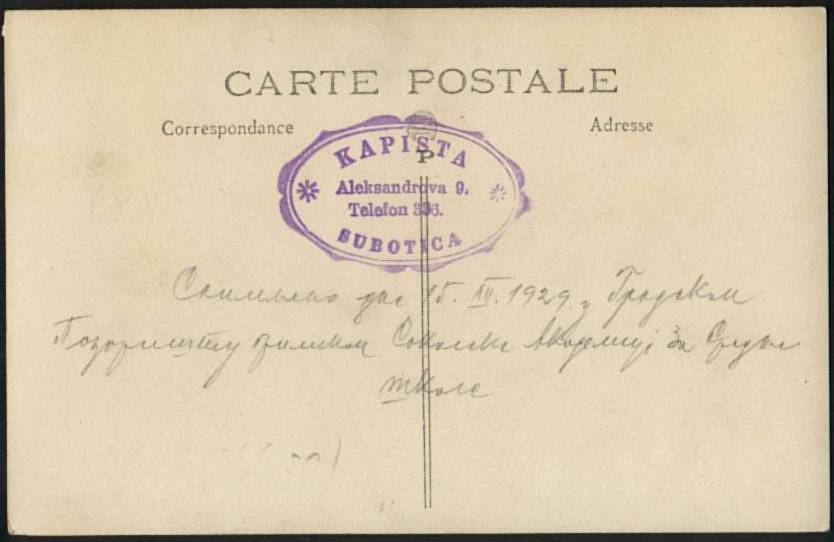 CARTE POSTALE
Correspondance
Adresse
KAPISTA
P
Aleksandrova 9.
Telefon 336.
SUBOTICA
Снимљено дне 15. XII. 1929. у Градском
Позоришту приликом Соколске Академије за Средње
школе